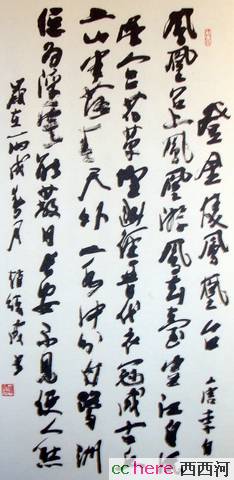 登金陵鳳凰台 唐李白
鳳凰台上鳳凰遊鳳去臺空江自流
吴宫花草埋幽徑晉代衣冠成古丘
三山半落青天外二水中分白鷺洲
總為浮雲能蔽日長安不見使人愁
歲在丙戌春月
cchere 西西河